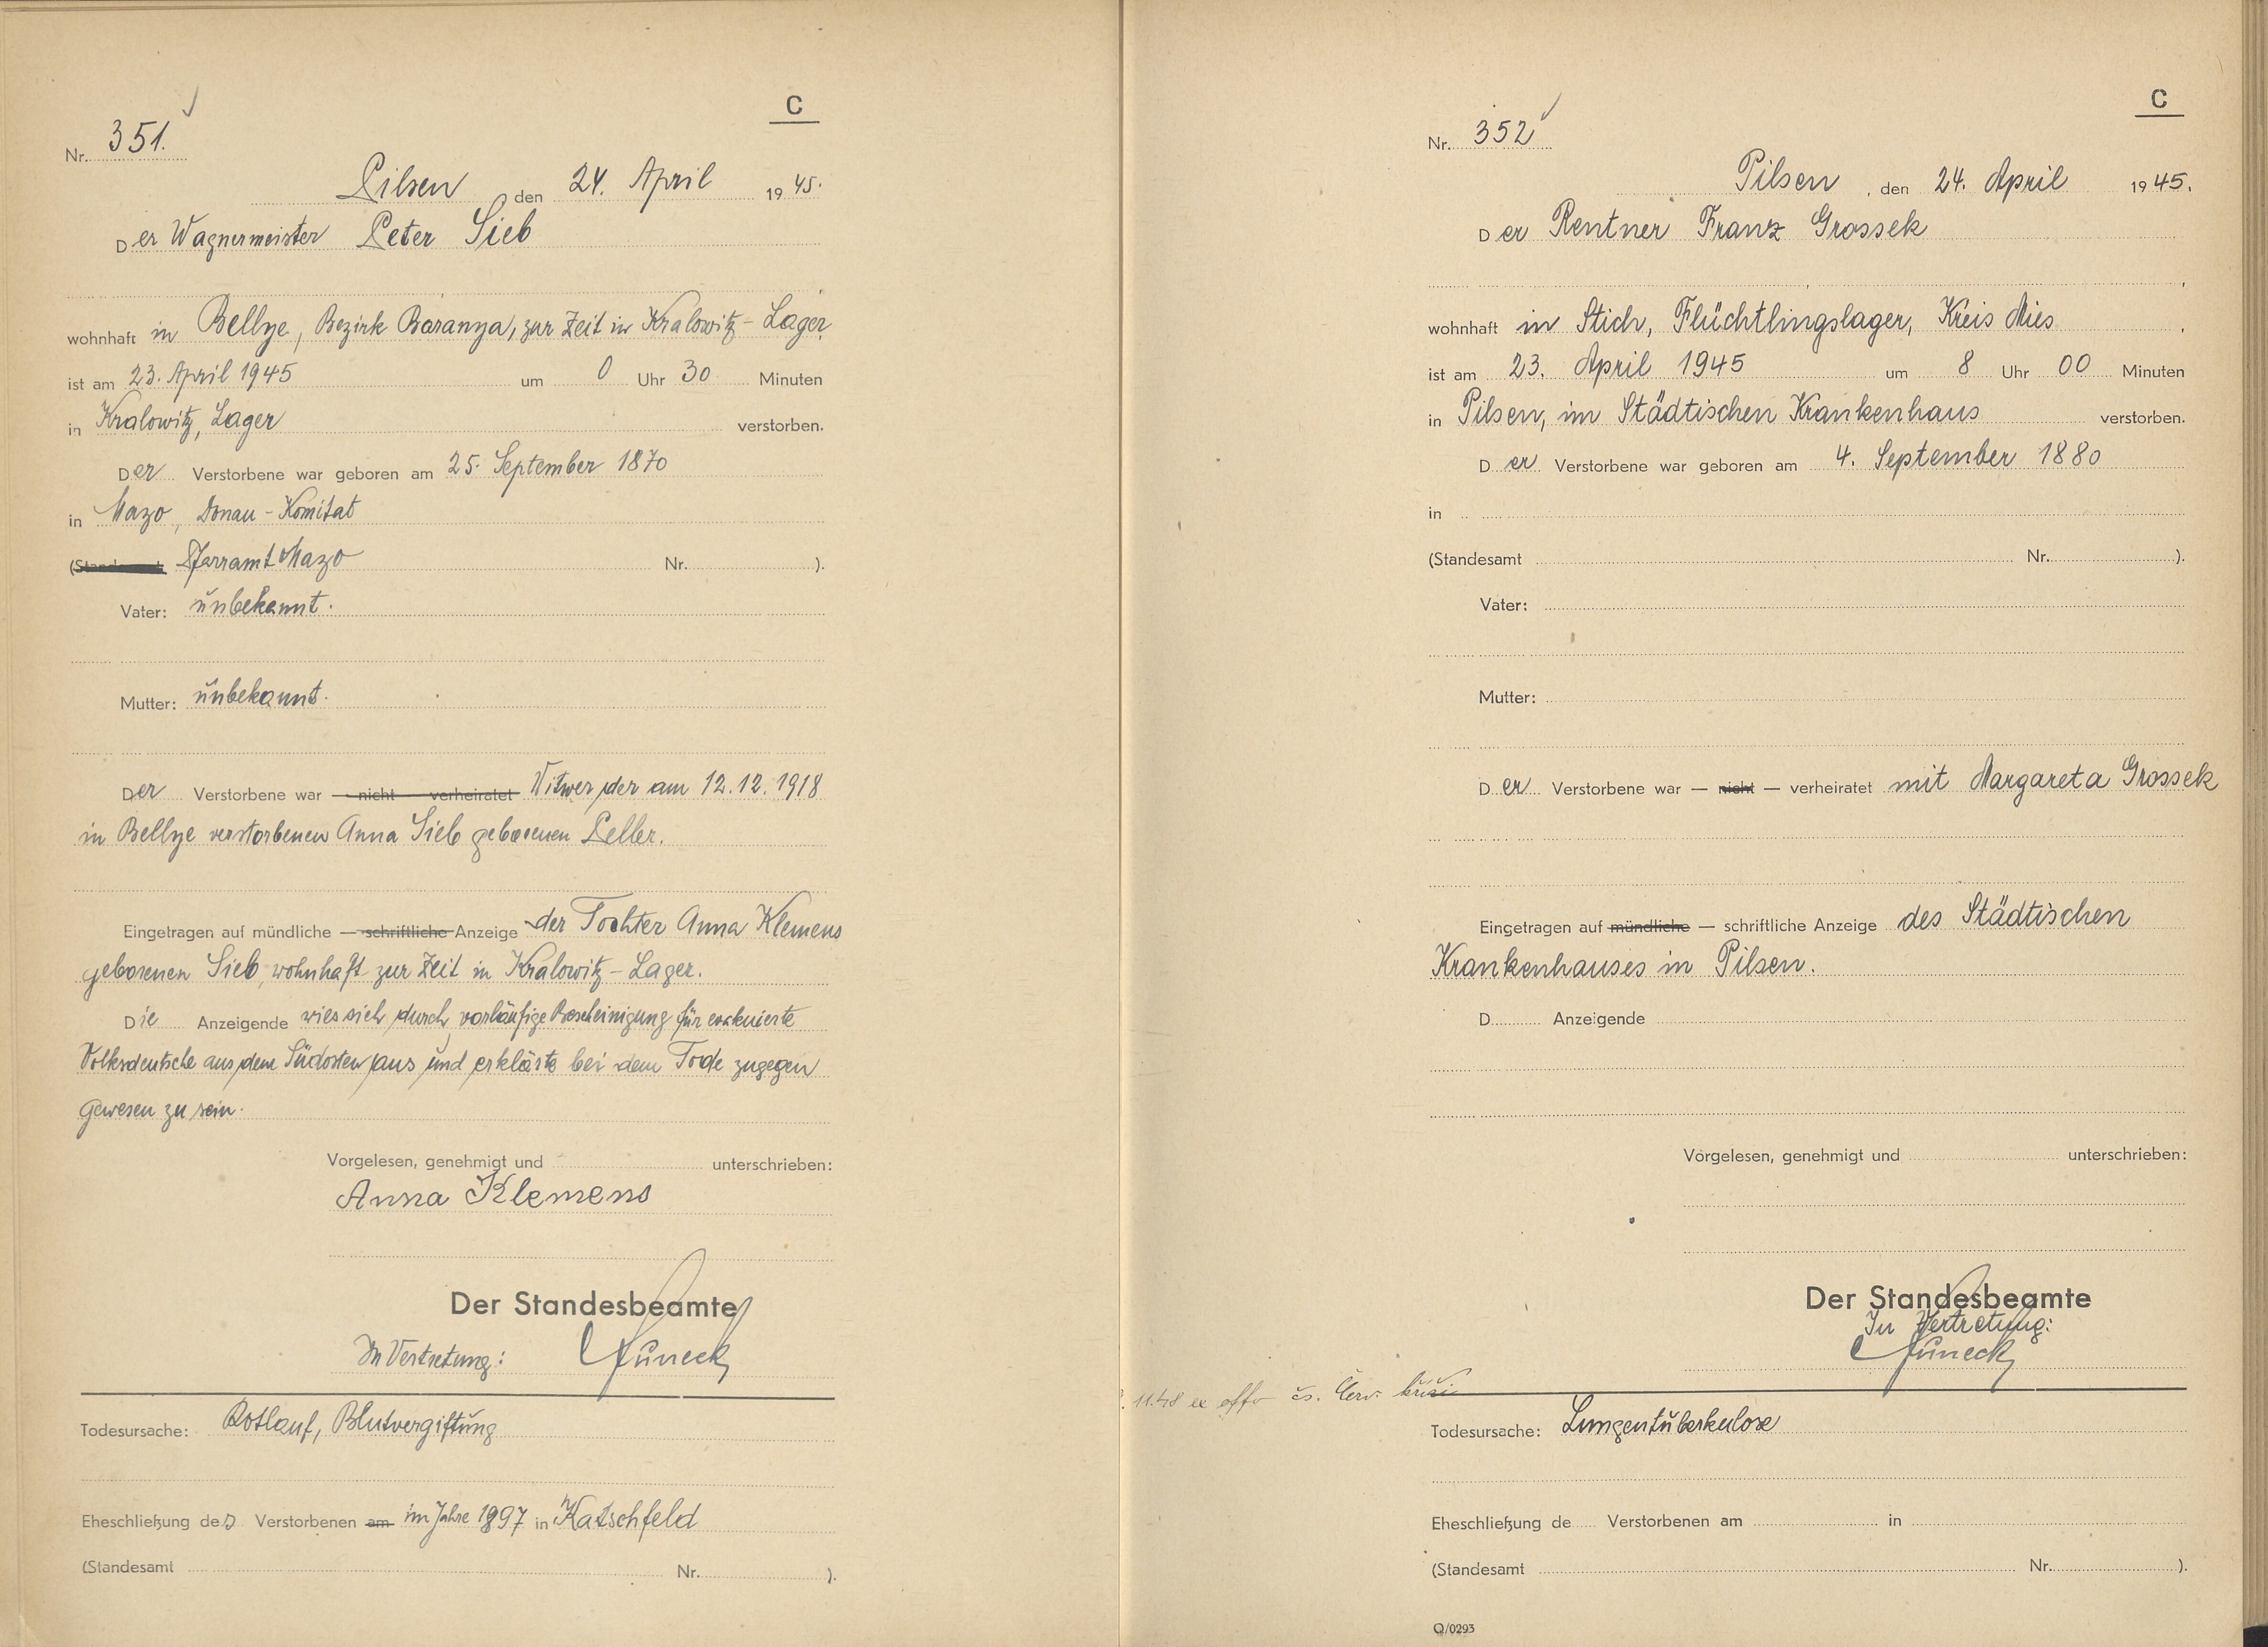 C
Nr. 351.
Pilsen den 24. April 1945.
Der Wagnermeister Peter Sieb
wohnhaft in Bellye, Bezirk Baranya, zur Zeit in Kralowitz-Lager.
ist am 23. April 1945 um 0 Uhr 30 Minuten
in Kralowitz, Lager verstorben.
Der Verstorbene war geboren am 25. September 1870
in Mazo, Donau-Komitat
(Standesamt Pfarramt Mazo Nr. ).
Vater: unbekannt.
Mutter: unbekannt.
Der Verstorbene war — nicht — verheiratet Witwer der am 12.12.1918
in Bellye verstorbenen Anna Sieb geborenen Peller.
Eingetragen auf mündliche — schriftliche Anzeige der Tochter Anna Klemens
geborenen Sieb, wohnhaft zur Zeit in Kralowitz-Lager.
Die Anzeigende wies sich durch vorläufige Bescheinigung für evakuierte
Volksdeutsche aus dem Südosten aus und erklärte bei dem Tode zugegen
gewesen zu sein.
Vorgelesen, genehmigt und unterschrieben:
Anna Klemens
Der Standesbeamte
In Vertretung:
Todesursache: Rotlauf, Blutvergiftung
Eheschließung des Verstorbenen am im Jahre 1897 in Katschfeld
(Standesamt Nr. ).
C
Nr. 352
Pilsen, den 24. April 1945.
Der Rentner Franz Grossek
wohnhaft in Stich, Flüchtlingslager, Kreis Mies.
ist am 23. April 1945 um 8 Uhr 00 Minuten
in Pilsen, im Städtischen Krankenhaus verstorben.
Der Verstorbene war geboren am 4. September 1880
in
(Standesamt Nr. ).
Vater:
Mutter:
Der Verstorbene war — nicht — verheiratet mit Margareta Grossek
Eingetragen auf mündliche — schriftliche Anzeige des Städtischen
Krankenhauses in Pilsen.
D Anzeigende
Vorgelesen, genehmigt und unterschrieben:
Der Standesbeamte
In Vertretung:
11.48 ex offo čs.
Todesursache: Lungentuberkulose
Eheschließung de Verstorbenen am in
(Standesamt Nr. ).
Q/0293